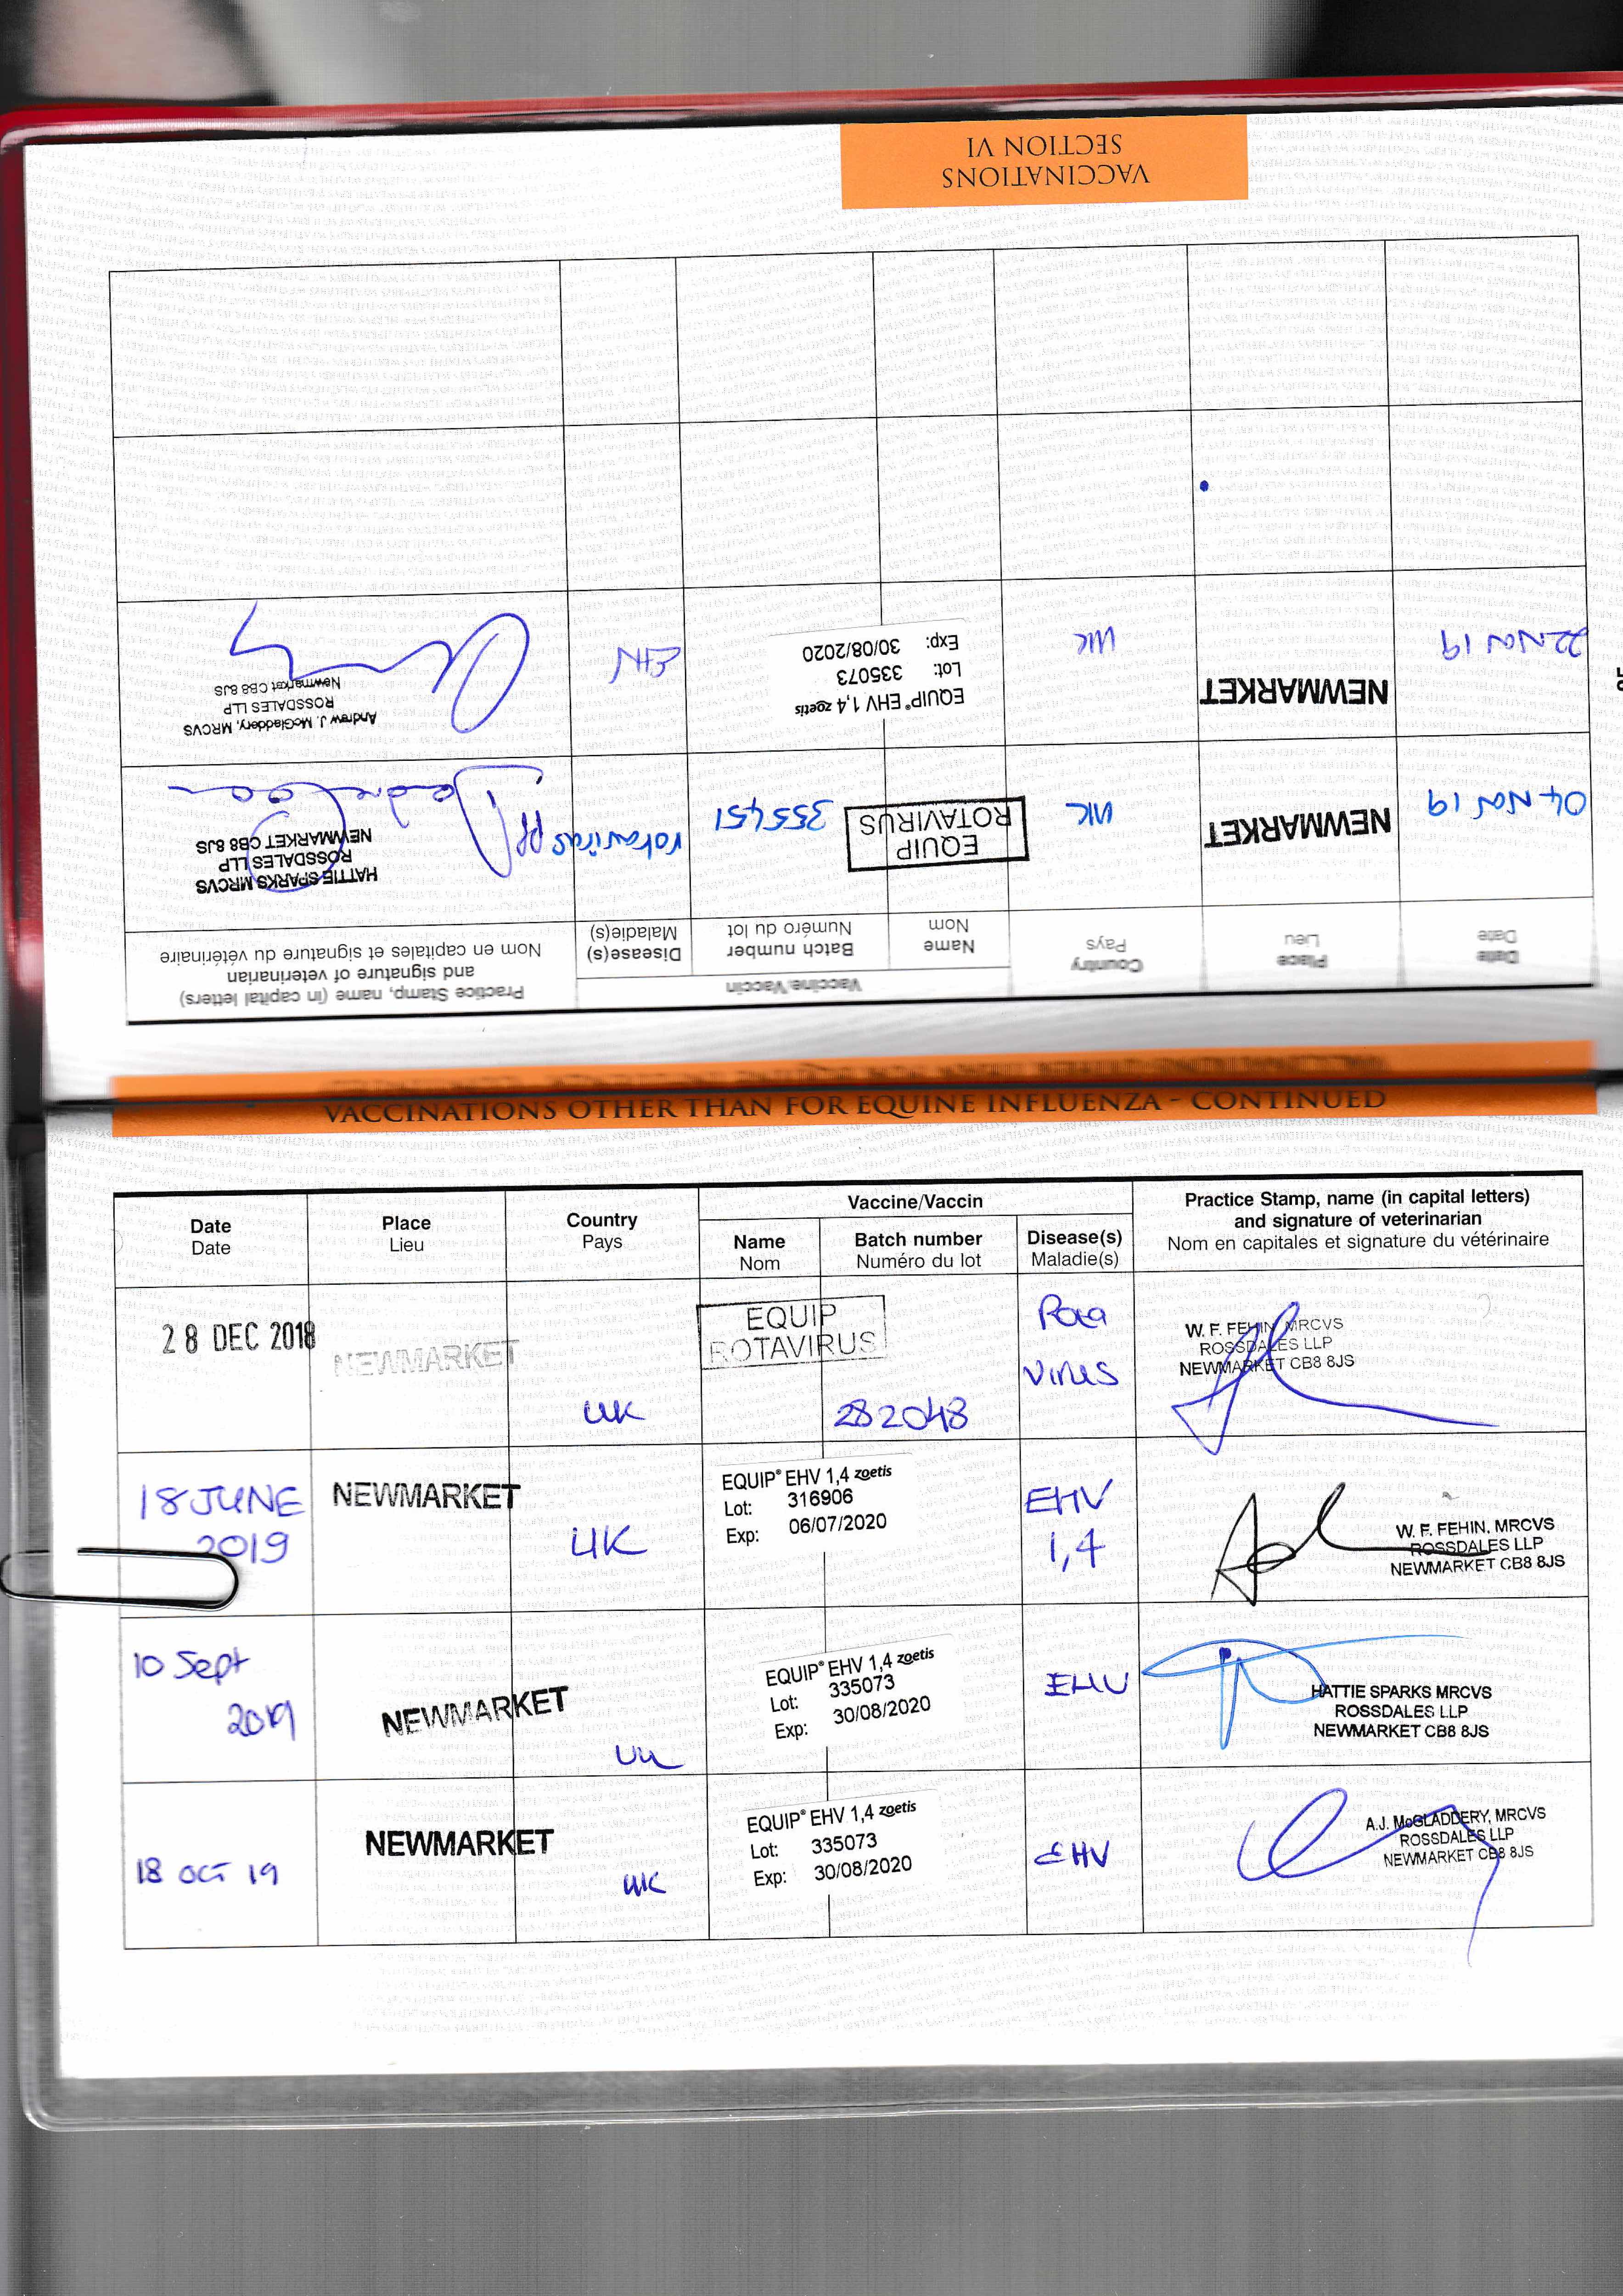 VACCINATIONS
SECTION VI
Date
Date
Place
Lieu
Country
Pays
Vaccine/Vaccin
Name
Nom
Batch number
Numéro du lot
Disease(s)
Maladie(s)
Practice Stamp, name (in capital letters)
and signature of veterinarian
Nom en capitales et signature du vétérinaire
04 NOV 19
NEWMARKET
UK
EQUIP
ROTAVIRUS
355451
rotavirus
pp
HATTIE SPARKS MRCVS
ROSSDALES LLP
NEWMARKET CB8 8JS
22 NOV 19
NEWMARKET
UK
EQUIP® EHV 1,4 zoetis
Lot: 335073
Exp: 30/08/2020
EHV
Andrew J. McGladdery, MRCVS
ROSSDALES LLP
Newmarket CB8 8JS
VACCINATIONS OTHER THAN FOR EQUINE INFLUENZA - CONTINUED
Date
Date
Place
Lieu
Country
Pays
Vaccine/Vaccin
Name
Nom
Batch number
Numéro du lot
Disease(s)
Maladie(s)
Practice Stamp, name (in capital letters)
and signature of veterinarian
Nom en capitales et signature du vétérinaire
28 DEC 2018
NEWMARKET
UK
EQUIP
ROTAVIRUS
282048
Rota
virus
W. F. FEHIN, MRCVS
ROSSDALES LLP
NEWMARKET CB8 8JS
18 JUNE
2019
NEWMARKET
UK
EQUIP® EHV 1,4 zoetis
Lot: 316906
Exp: 06/07/2020
EHV
1,4
W. F. FEHIN, MRCVS
ROSSDALES LLP
NEWMARKET CB8 8JS
10 Sept
2019
NEWMARKET
UK
EQUIP® EHV 1,4 zoetis
Lot: 335073
Exp: 30/08/2020
EHV
HATTIE SPARKS MRCVS
ROSSDALES LLP
NEWMARKET CB8 8JS
18 OCT 19
NEWMARKET
UK
EQUIP® EHV 1,4 zoetis
Lot: 335073
Exp: 30/08/2020
EHV
A.J. McGLADDERY, MRCVS
ROSSDALES LLP
NEWMARKET CB8 8JS